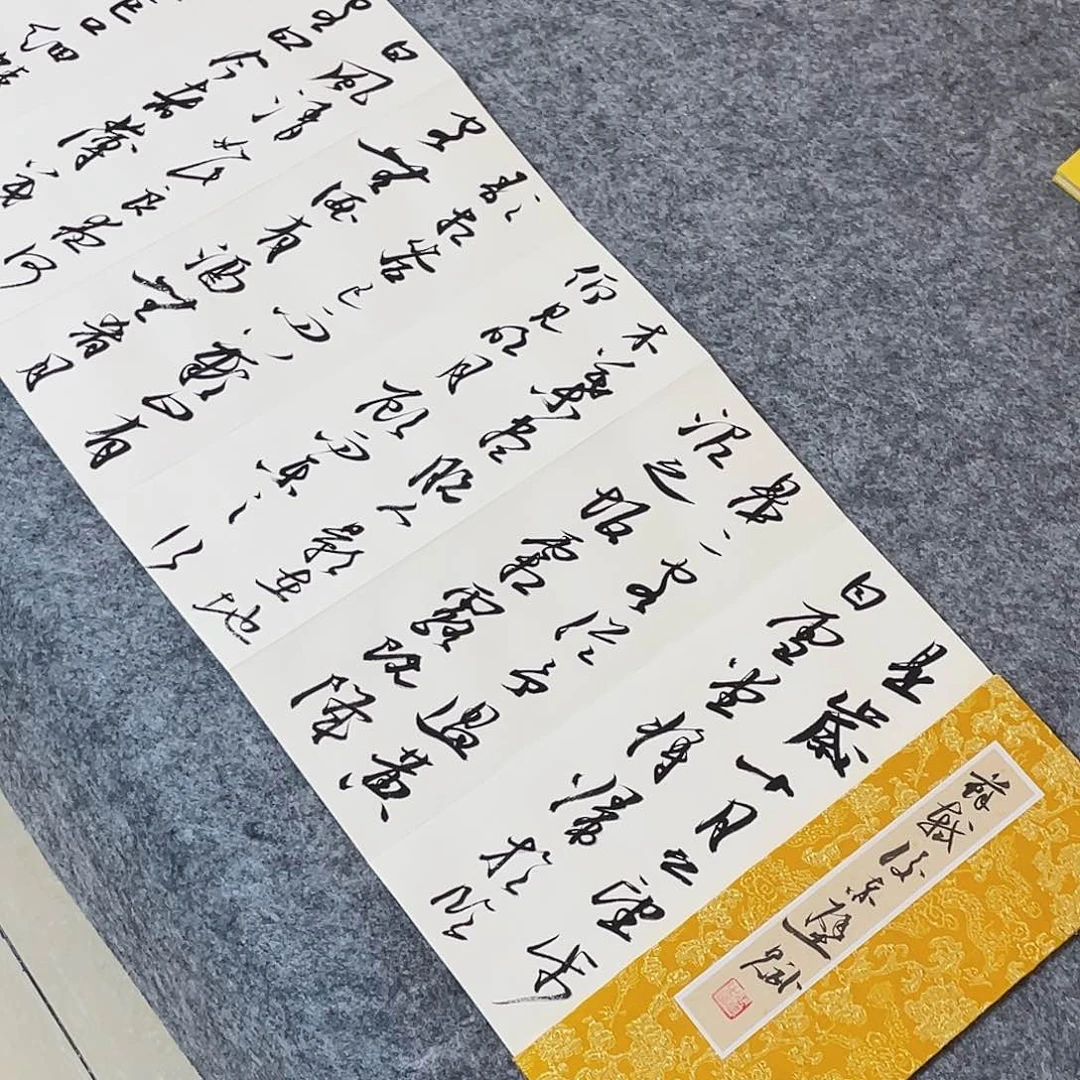 蘇軾後赤壁賦
是歲十月之望步
自雪堂將歸於臨
皋二客從予過黃
泥之坂霜露既降
木葉盡脫人影在地
仰見明月顧而樂之行
歌相答已而歎曰有
客無酒有酒無肴月
白風清如此良夜何
客曰今者薄
口細鱗